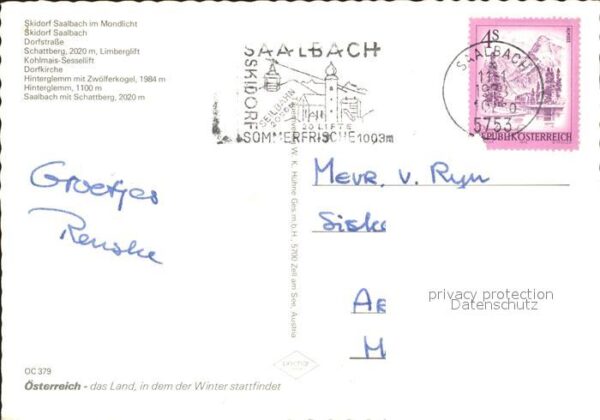 Skidorf Saalbach im Mondlicht
Skidorf Saalbach
Dorfstraße
Schattberg, 2020 m, Limberglift
Kohlmais-Sessellift
Dorfkirche
Hinterglemm mit Zwölferkogel, 1984 m
Hinterglemm, 1100 m
Saalbach mit Schattberg, 2020 m
SAALBACH
SKIDORF
SEILBAHN
20 LIFTE
SOMMERFRISCHE 1003m
SAALBACH
5753
4S
REPUBLIK ÖSTERREICH
Groetjes
Renske
W. K. Hühne Ges.m.b.H., 5700 Zell am See, Austria
Mevr. v. Ryn
Sisk
AE
M
privacy protection
Datenschutz
OC 379
Österreich - das Land, in dem der Winter stattfindet